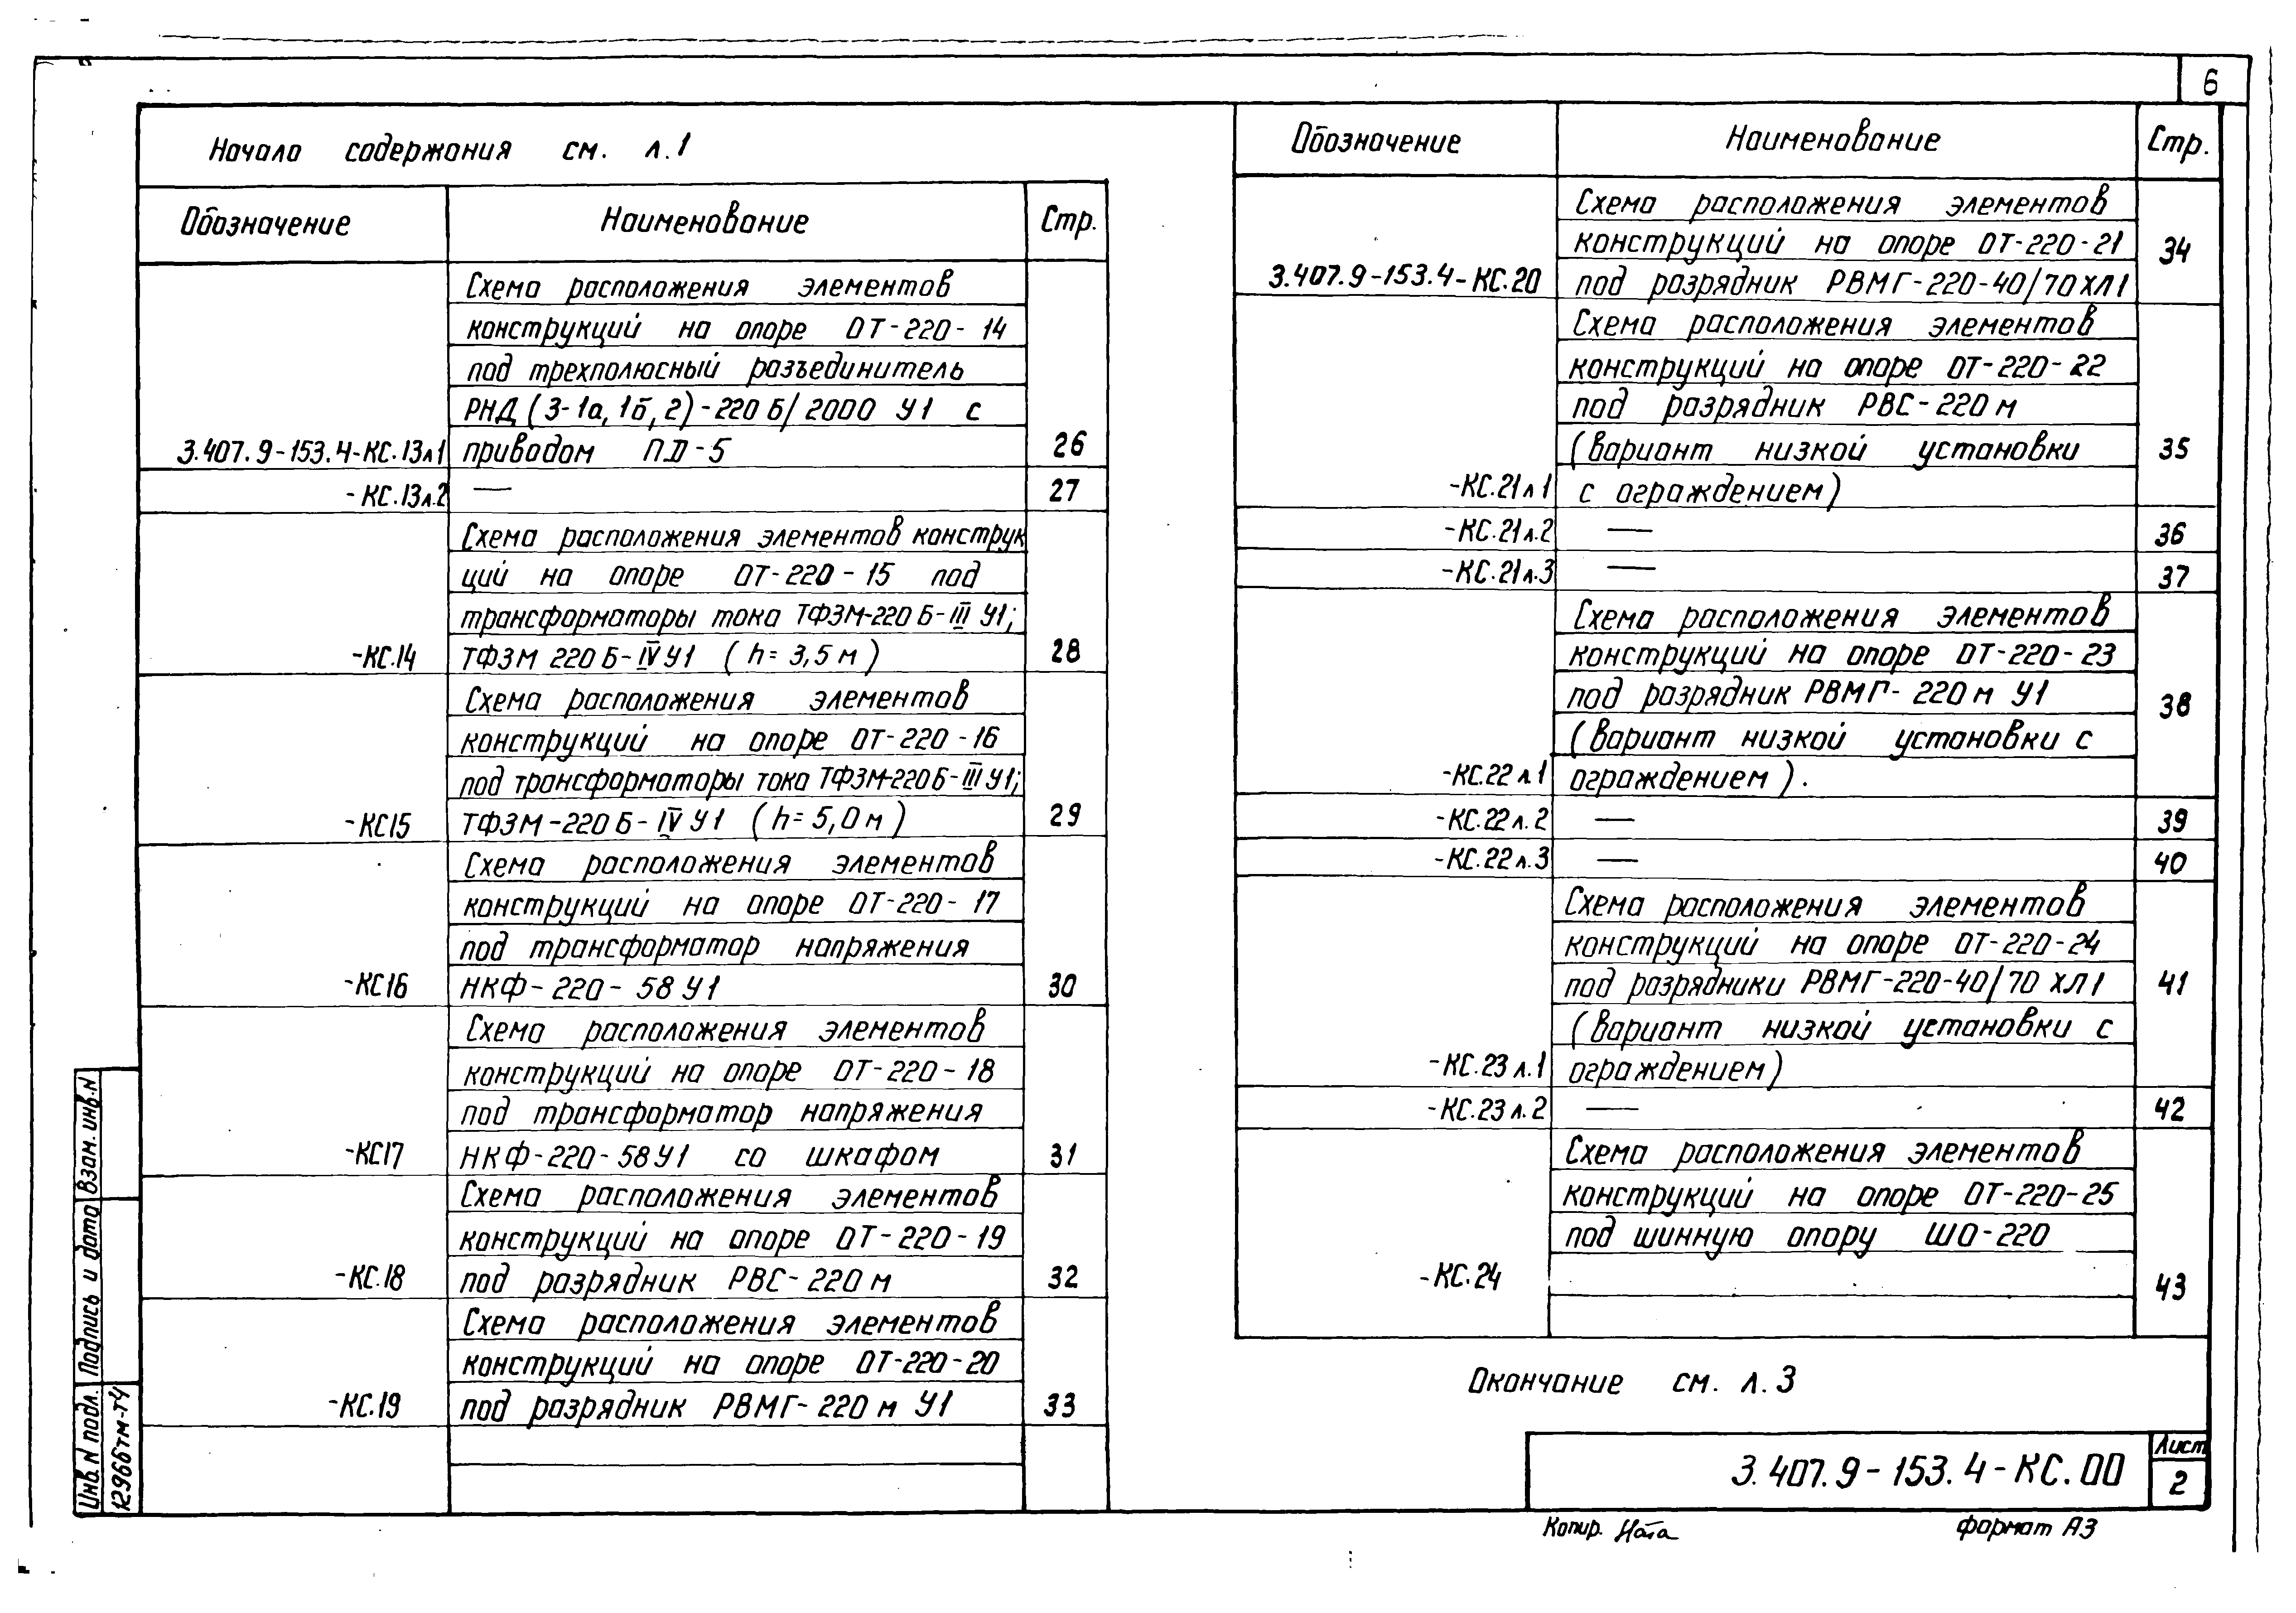 6
Начало содержания см. л.1
Обозначение Наименование Стр.
Схема расположения элементов
конструкций на опоре ОТ-220-14
под трехполюсный разъединитель
РНД(3-1а,1б,2)-220Б/2000 У1 с
3.407.9-153.4-КС.13л1 приводом ПД-5 26
-КС.13л.2 — 27
Схема расположения элементов конструк
ций на опоре ОТ-220-15 под
трансформаторы тока ТФЗМ-220Б-III У1;
-КС.14 ТФЗМ 220Б-IV У1 (h=3,5м) 28
Схема расположения элементов
конструкций на опоре ОТ-220-16
под трансформаторы тока ТФЗМ-220Б-III У1;
-КС15 ТФЗМ-220Б-IV У1 (h=5,0м) 29
Схема расположения элементов
конструкций на опоре ОТ-220-17
под трансформатор напряжения
-КС16 НКФ-220-58У1 30
Схема расположения элементов
конструкций на опоре ОТ-220-18
под трансформатор напряжения
-КС17 НКФ-220-58У1 со шкафом 31
Схема расположения элементов
конструкций на опоре ОТ-220-19
-КС.18 под разрядник РВС-220м 32
Схема расположения элементов
конструкций на опоре ОТ-220-20
-КС.19 под разрядник РВМГ-220м У1 33
Обозначение Наименование Стр.
Схема расположения элементов
конструкций на опоре ОТ-220-21 34
3.407.9-153.4-КС.20 под разрядник РВМГ-220-40/70ХЛ1
Схема расположения элементов
конструкций на опоре ОТ-220-22
под разрядник РВС-220м
(вариант низкой установки 35
-КС.21л1 с ограждением)
-КС.21л.2 — 36
-КС.21л.3 — 37
Схема расположения элементов
конструкций на опоре ОТ-220-23
под разрядник РВМГ-220м У1 38
(вариант низкой установки с
-КС.22л.1 ограждением).
-КС.22л.2 — 39
-КС.22л.3 — 40
Схема расположения элементов
конструкций на опоре ОТ-220-24
под разрядники РВМГ-220-40/70ХЛ1 41
(вариант низкой установки с
-КС.23л.1 ограждением)
-КС.23л.2 — 42
Схема расположения элементов
конструкций на опоре ОТ-220-25
под шинную опору ШО-220
-КС.24 43
Окончание см. л.3
3.407.9-153.4-КС.00
Лист
2
Копир. Ната формат А3
Взам. инв.N
Подпись и дата
Инв.N подл.
12966тм-т4